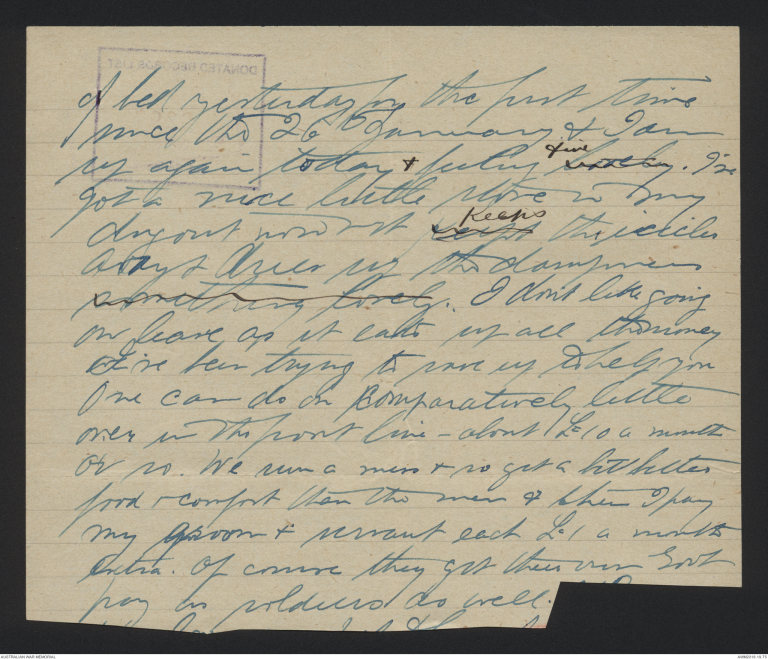 of bed yesterday for the first time
since the 26th January & I am
up again today & feeling fine lovely. I've
got a nice little stove in my
dugout now & it keeps the icicles
away & dries up the dampness
something lovely. I don't like going
on leave as it eats up all the money
I've been trying to save up to help you
One can do on comparatively little
over in the front line - about £10 a month
or so. We run a mess & so get a bit better
food & comfort than the men & then I pay
my groom & servant each £1 a month
extra. Of course they get their own Govt
pay as soldiers as well.
DONATED RECORDS LIST
AUSTRALIAN WAR MEMORIAL